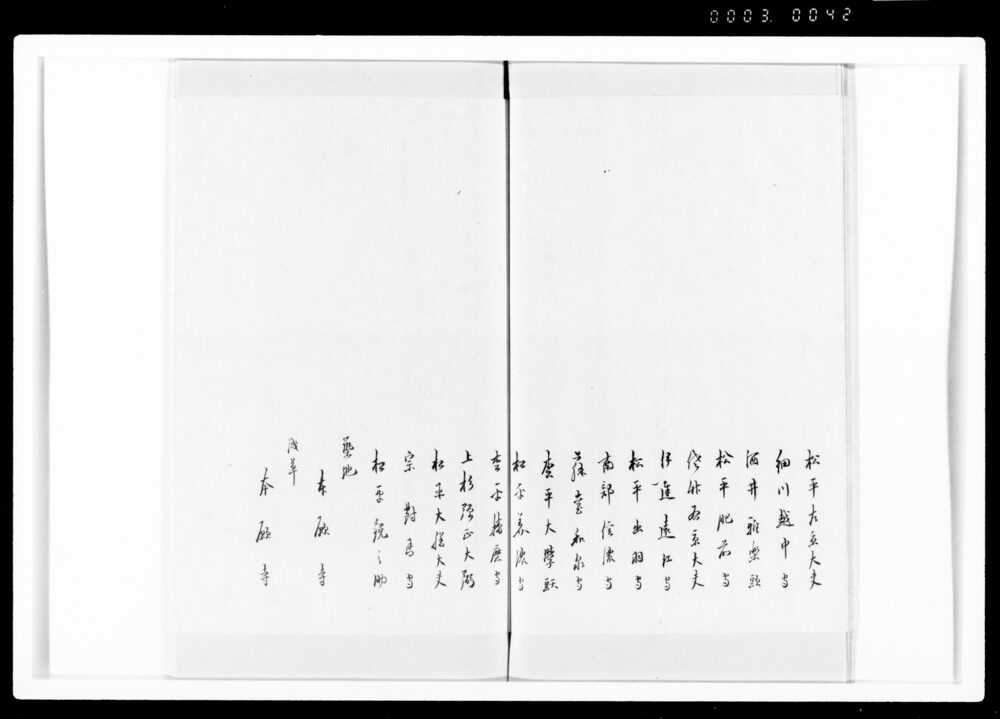 0003. 0042
松平左京大夫
細川越中守
酒井雅樂頭
松平肥前守
佐竹右京大夫
伊達遠江守
松平出羽守
南部信濃守
藤堂和泉守
松平大學頭
松平美濃守
松平播磨守
上杉弾正大弼
松平大膳大夫
宗對馬守
松平銕之助
築地
本願寺
浅草
本願寺